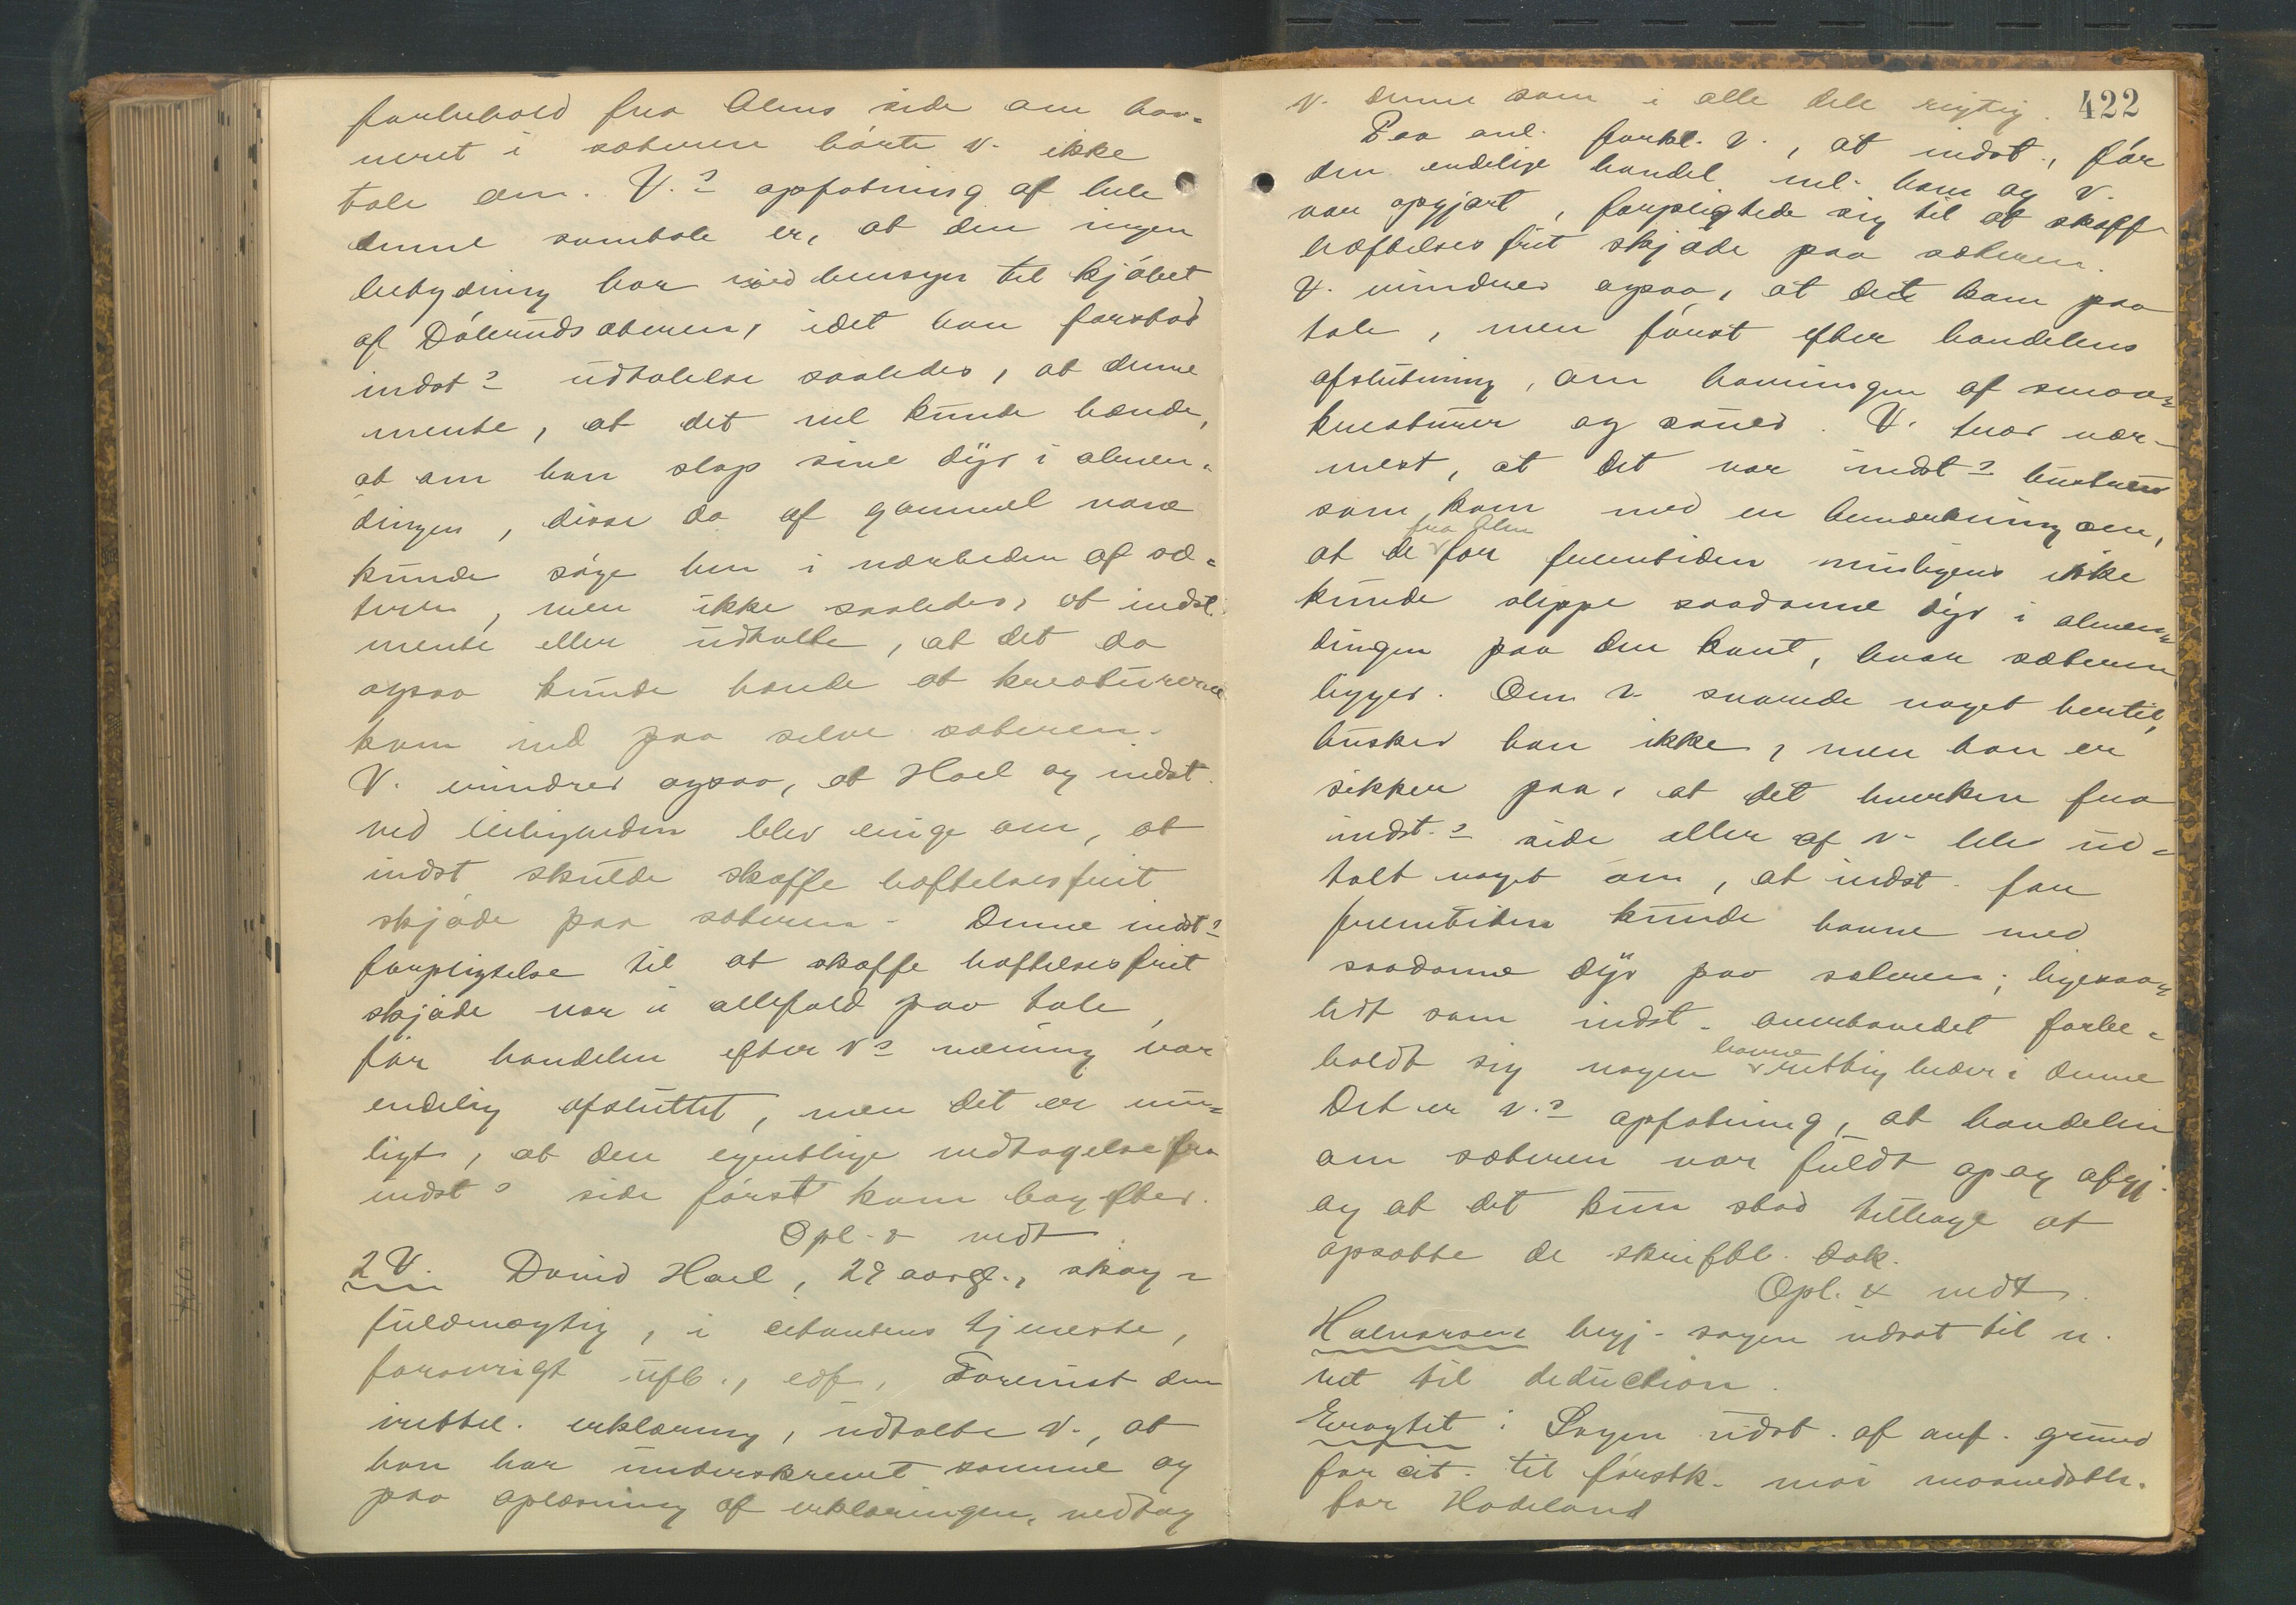 forbehold fra Alms side om hav-
neret i sæteren hørte v. ikke
tale om. V.s opfatning af hele
denne samtale er, at den ingen
betydning har med hensyn til kjøbet
af Dølerudsæteren, idet han forstod
indst.s udtalelse saaledes, at denne
mente, at det vel kunde hænde,
at om han slap sine dyr i almen-
dingen, disse da af gammel vane
kunde søge hen i nærheden af sæ-
teren, men ikke saaledes, at indst.
mente eller udtalte, at det da
ogsaa kunde hænde at kreaturerne
kom ind paa selve sæteren.
V. mindres ogsaa, at Hoel og indst.
ved leiligheden blev enige om, at
indst. skulde skaffe hæftelsesfrit
skjøde paa sæteren. Denne indst.s
forpligtelse til at skaffe hæftelsesfrit
skjøde var i allefald paa tale,
før handelen efter v.s mening var
endelig afsluttet, men det er mu-
ligt, at den egentlige vedtagelse fra
indst.s side først kom bagefter.
Opl. & vedt.
2 V. David Hoel, 29 aar gl., skog-
fuldmægtig, i citantens tjeneste,
forøvrigt ufb., edf. Forevist den
irettel. erklæring, udtalte v., at
han har underskrevet samme og
paa oplæsning af erklæringen, vedtog
v. denne som i alle dele rigtig. 422
Paa anl. forkl. v., at indst., før
den endelige handel ml. ham og v.
var opgjort, forpligtede sig til at skaffe
hæftelsesfrit skjøde paa sæteren.
V. mindres ogsaa, at det kom paa
tale, men først efter handelens
afslutning, om havningen af smaa-
kreaturer og sauer. V. tror nær-
mest, at det var indst.s hustru
som kom med en bemærkning om,
fra Alm
at de for fremtiden muligens ikke
kunde slippe saadanne dyr i almen-
dingen paa den kant, hvor sæteren
ligger. Om v. svarede noget hertil,
husker han ikke, men han er
sikker paa, at det hverken fra
indst.s side eller af v. blev ud-
talt noget om, at indst. for
fremtiden kunde havne med
saadanne dyr paa sæteren; ligesaa-
lidt som indst. overhovedet forbe-
havne
holdt sig nogen rettigheder i denne
Det er v.s opfatning, at handelen
om sæteren var fuldt op og afgj.
og at det kun stod tilbage at
opsætte de skriftl. dok.
Opl. & vedt.
Halvorsen begj. sagen udsat til n.
ret til deduction.
Eragtet: Sagen udst. af anf. grund
for cit. til førstk. mai maanedsth.
for Hadeland